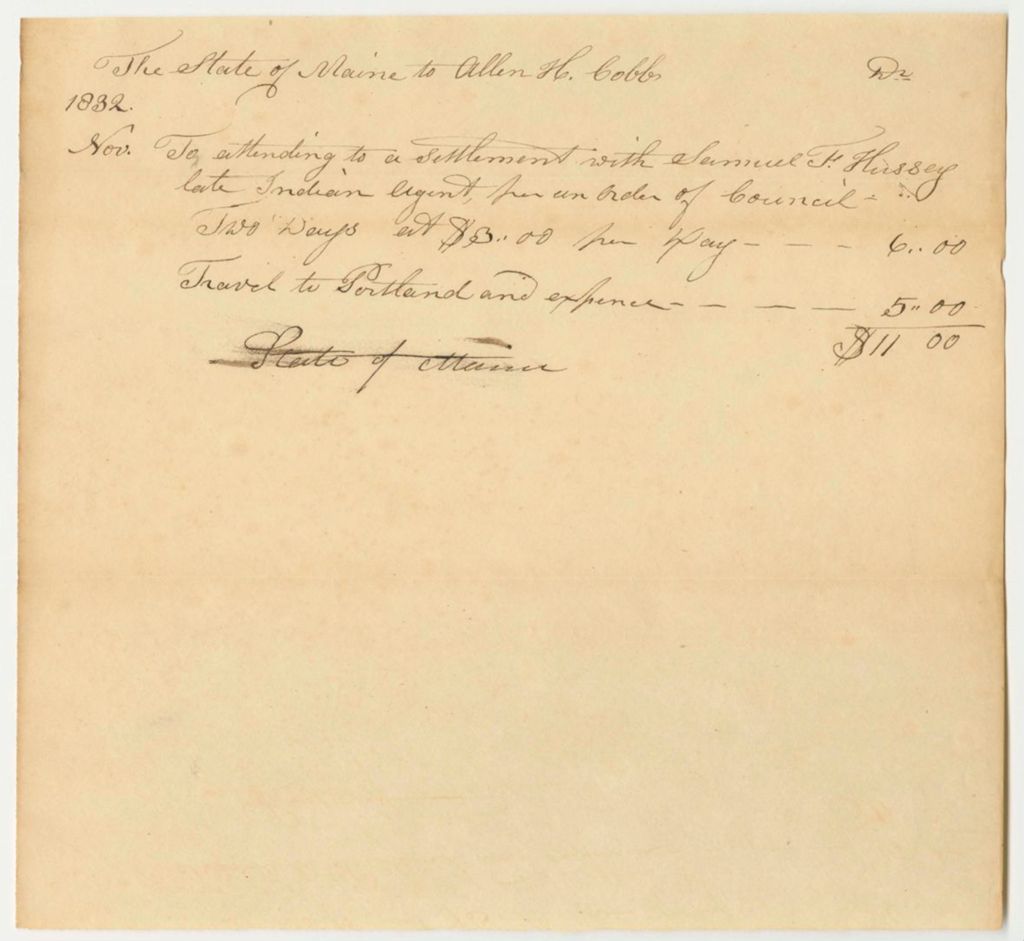 The State of Maine to Allen H. Cobb Dr
1832.
Nov. To attending to a settlement with Samuel F. Hussey
late Indian Agent, per an order of Council -
Two Days at $3..00 per Day - - - 6..00
Travel to Portland and expence - - - - 5..00
$11 00
State of Maine